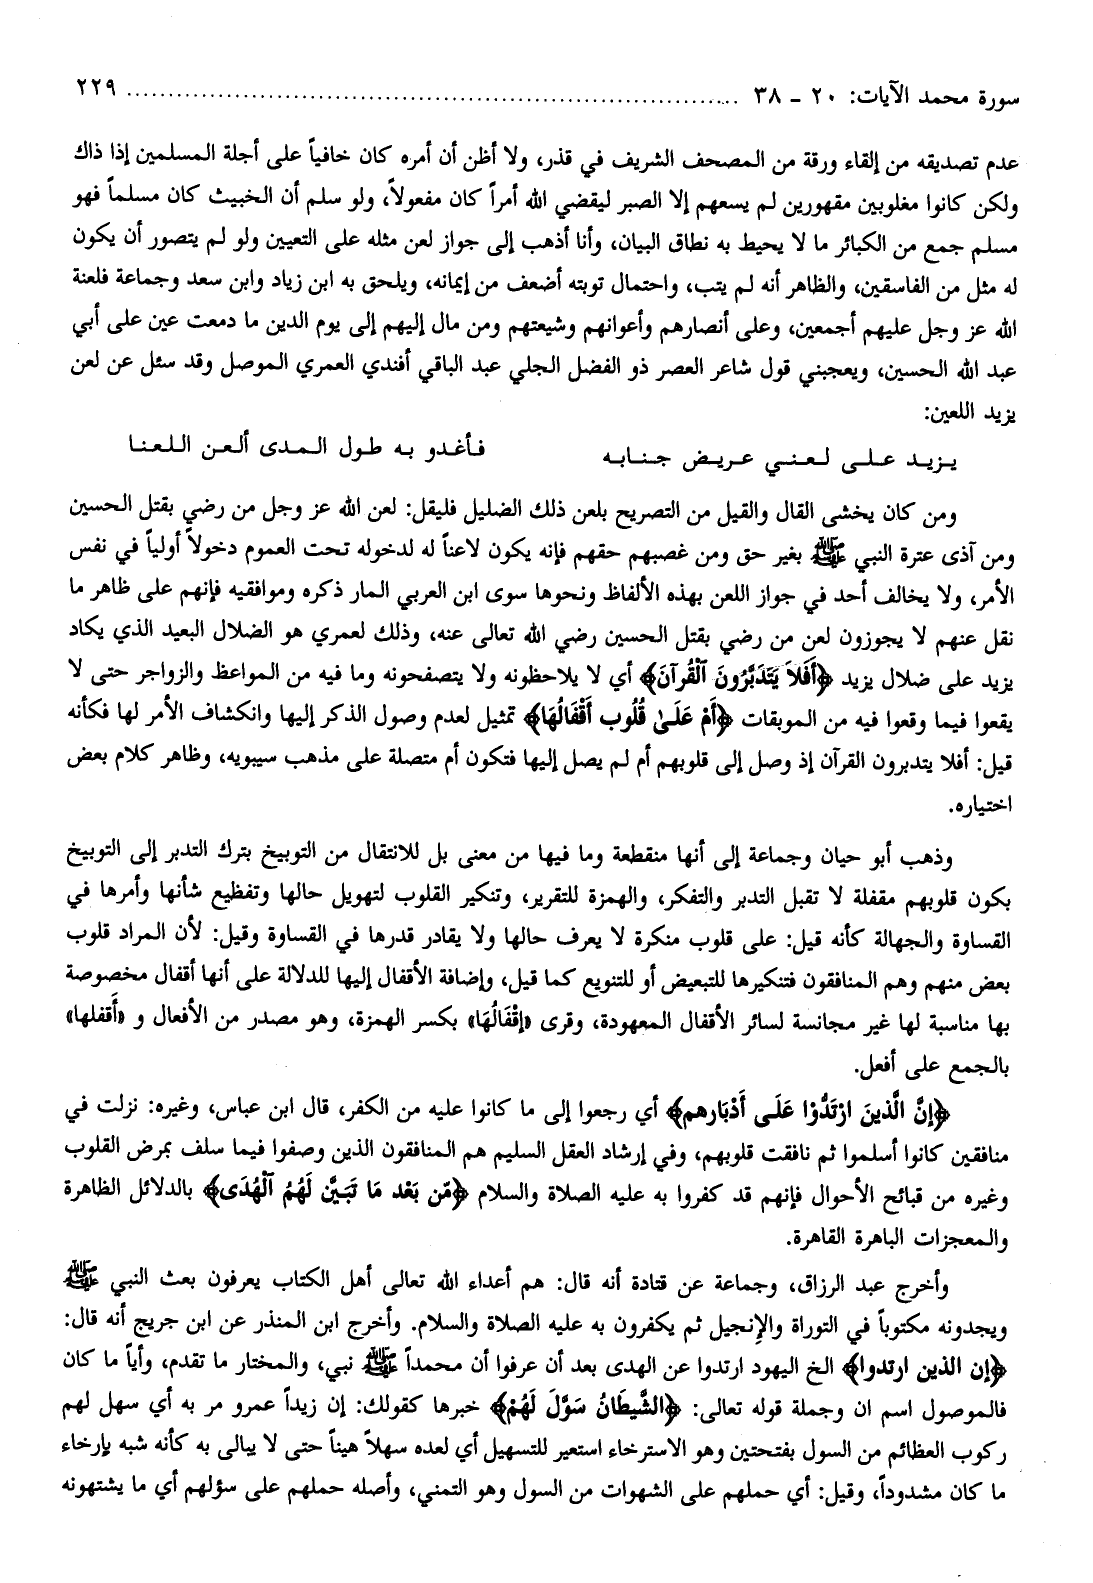 سورة محمد الآيات: ٢٠ ـ ٣٨ ........................................................................ ٢٢٩
عدم تصديقه من إلقاء ورقة من المصحف الشريف في قذر، ولا أظن أن أمره كان خافياً على أجلة المسلمين إذا ذاك
ولكن كانوا مغلوبين مقهورين لم يسعهم إلا الصبر ليقضي الله أمراً كان مفعولاً، ولو سلم أن الخبيث كان مسلماً فهو
مسلم جمع من الكبائر ما لا يحيط به نطاق البيان، وأنا أذهب إلى جواز لعن مثله على التعيين ولو لم يتصور أن يكون
له مثل من الفاسقين، والظاهر أنه لم يتب، واحتمال توبته أضعف من إيمانه، ويلحق به ابن زياد وابن سعد وجماعة فلعنة
الله عز وجل عليهم أجمعين، وعلى أنصارهم وأعوانهم وشيعتهم ومن مال إليهم إلى يوم الدين ما دمعت عين على أبي
عبد الله الحسين، ويعجبني قول شاعر العصر ذو الفضل الجلي عبد الباقي أفندي العمري الموصل وقد سئل عن لعن
يزيد اللعين:
يـزيـد عـلـى لـعـنـي عـريـض جـنـابـه فـأغـدو بـه طـول الـمـدى ألـعـن الـلـعـنـا
ومن كان يخشى القال والقيل من التصريح بلعن ذلك الضليل فليقل: لعن الله عز وجل من رضي بقتل الحسين
ومن آذى عترة النبي ﷺ بغير حق ومن غصبهم حقهم فإنه يكون لاعناً له لدخوله تحت العموم دخولاً أولياً في نفس
الأمر، ولا يخالف أحد في جواز اللعن بهذه الألفاظ ونحوها سوى ابن العربي المار ذكره وموافقيه فإنهم على ظاهر ما
نقل عنهم لا يجوزون لعن من رضي بقتل الحسين رضي الله تعالى عنه، وذلك لعمري هو الضلال البعيد الذي يكاد
يزيد على ضلال يزيد ﴿أَفَلاَ يَتَدَبَّرُونَ ٱلْقُرآنَ﴾ أي لا يلاحظونه ولا يتصفحونه وما فيه من المواعظ والزواجر حتى لا
يقعوا فيما وقعوا فيه من الموبقات ﴿أَمْ عَلَىٰ قُلُوب أَقْفَالُهَا﴾ تمثيل لعدم وصول الذكر إليها وانكشاف الأمر لها فكأنه
قيل: أفلا يتدبرون القرآن إذ وصل إلى قلوبهم أم لم يصل إليها فتكون أم متصلة على مذهب سيبويه، وظاهر كلام بعض
اختياره.
وذهب أبو حيان وجماعة إلى أنها منقطعة وما فيها من معنى بل للانتقال من التوبيخ بترك التدبر إلى التوبيخ
بكون قلوبهم مقفلة لا تقبل التدبر والتفكر، والهمزة للتقرير، وتنكير القلوب لتهويل حالها وتفظيع شأنها وأمرها في
القساوة والجهالة كأنه قيل: على قلوب منكرة لا يعرف حالها ولا يقادر قدرها في القساوة وقيل: لأن المراد قلوب
بعض منهم وهم المنافقون فتنكيرها للتبعيض أو للتنويع كما قيل، وإضافة الأقفال إليها للدلالة على أنها أقفال مخصوصة
بها مناسبة لها غير مجانسة لسائر الأقفال المعهودة، وقرى «إقْفَالُهَا» بكسر الهمزة، وهو مصدر من الأفعال و «أَقفلها»
بالجمع على أفعل.
﴿إنَّ الَّذينَ ارْتَدُّوْا عَلَـى أَدْبَارهم﴾ أي رجعوا إلى ما كانوا عليه من الكفر، قال ابن عباس، وغيره: نزلت في
منافقين كانوا أسلموا ثم نافقت قلوبهم، وفي إرشاد العقل السليم هم المنافقون الذين وصفوا فيما سلف بمرض القلوب
وغيره من قبائح الأحوال فإنهم قد كفروا به عليه الصلاة والسلام ﴿مّن بَعْد مَا تَبَـيَّن لَهُمُ ٱلْهُدَى﴾ بالدلائل الظاهرة
والمعجزات الباهرة القاهرة.
وأخرج عبد الرزاق، وجماعة عن قتادة أنه قال: هم أعداء الله تعالى أهل الكتاب يعرفون بعث النبي ﷺ
ويجدونه مكتوباً في التوراة والإنجيل ثم يكفرون به عليه الصلاة والسلام. وأخرج ابن المنذر عن ابن جريج أنه قال:
﴿إن الذين ارتدوا﴾ الخ اليهود ارتدوا عن الهدى بعد أن عرفوا أن محمداً ﷺ نبي، والمختار ما تقدم، وأياً ما كان
فالموصول اسم ان وجملة قوله تعالى: ﴿الشَّيطَانُ سَوَّلَ لَهُمْ﴾ خبرها كقولك: إن زيداً عمرو مر به أي سهل لهم
ركوب العظائم من السول بفتحتين وهو الاسترخاء استعير للتسهيل أي لعده سهلاً هيناً حتى لا يبالى به كأنه شبه بإرخاء
ما كان مشدوداً، وقيل: أي حملهم على الشهوات من السول وهو التمني، وأصله حملهم على سؤلهم أي ما يشتهونه